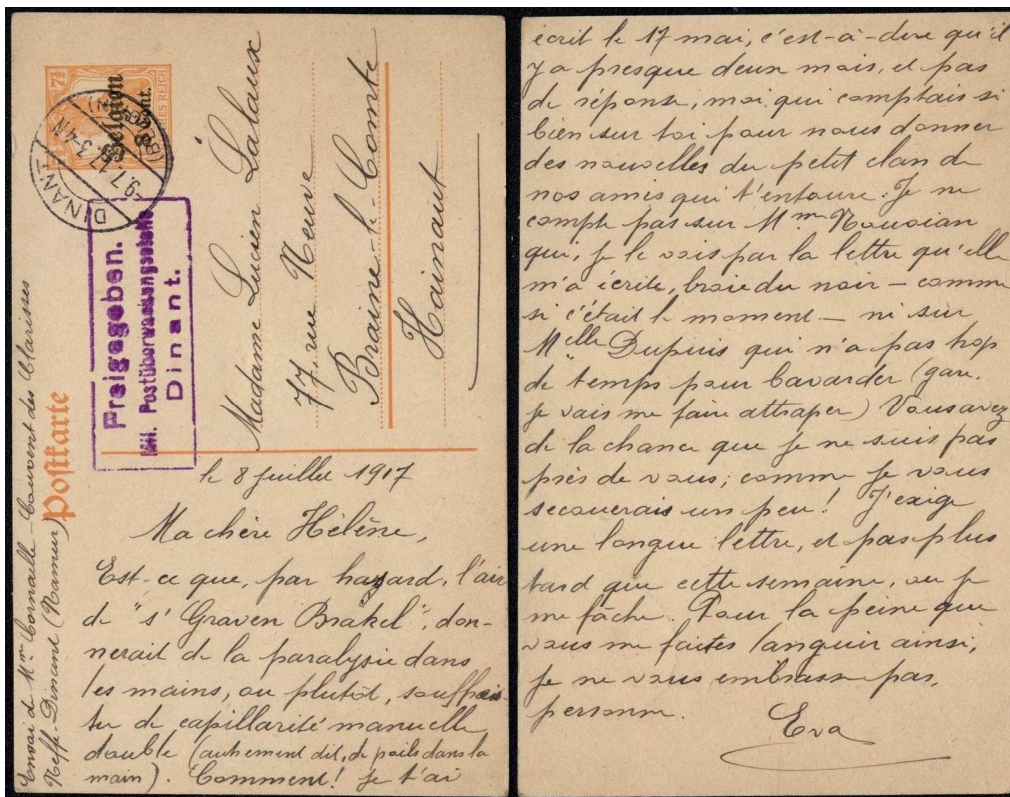 7½
DEUTSCHES REICH
Belgien
8 Cent.
DINANT
-9.7.17. 3-4N
Freigegeben.
Mil. Postüberwachungsstelle
Dinant.
Postkarte
Madame Lucien Lalaux
77, rue Neuve
Braine-le-Comte
Hainaut
Envoi de Mme Cornaille - Couvent des Clarisses
Neffe-Dinant (Namur)
le 8 juillet 1917
Ma chère Hélène,
Est-ce que, par hazard, l'air
de "s' Graven Brakel", don-
nerait de la paralysie dans
les mains, ou plutôt, souffres-
tu de capillarité manuelle
double (autrement dit, de poils dans la
main). Comment! je t'ai
écrit le 17 mai, c'est-à-dire qu'il
y a presque deux mois, et pas
de réponse, moi qui comptais si
bien sur toi pour nous donner
des nouvelles du petit clan de
nos amis qui t'entoure. Je ne
compte pas sur Mme
qui, je le vois par la lettre qu'elle
m'a écrite, broie du noir - comme
si c'était le moment - ni sur
Melle Dupuis qui n'a pas trop
de temps pour bavarder (gare,
je vais me faire attraper) Vous avez
de la chance que je ne suis pas
près de vous; comme je vous
secouerais un peu! J'exige
une longue lettre, et pas plus
tard que cette semaine, ou je
me fâche. Pour la peine que
vous me faites languir ainsi,
je ne vous embrasse pas,
personne.
Eva